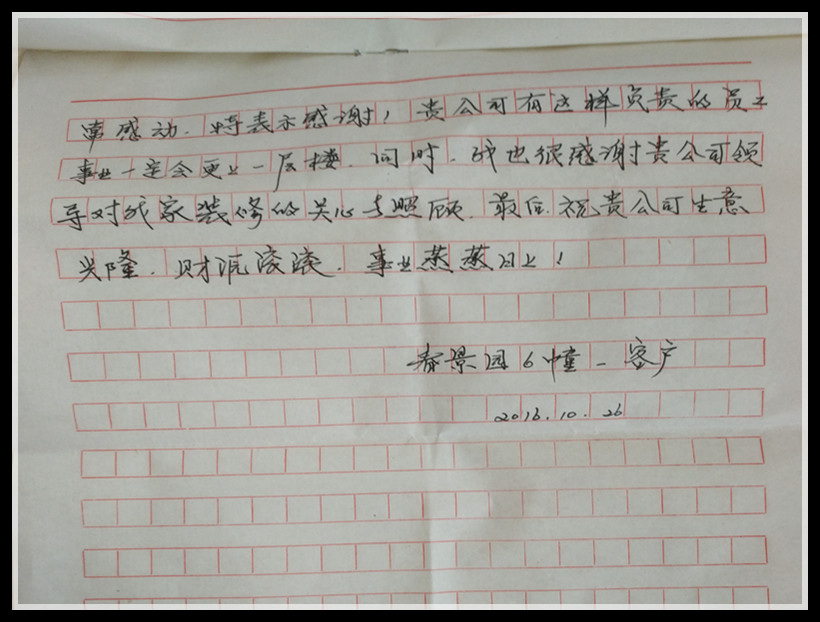 常感动.特表示感谢!贵公司有这样负责的员工
事业一定会更上一层楼.同时.我也很感谢贵公司领
导对我家装修的关心与照顾.最后.祝贵公司生意
兴隆.财源滚滚.事业蒸蒸日上!
春景园6幢一客户
2016.10.26